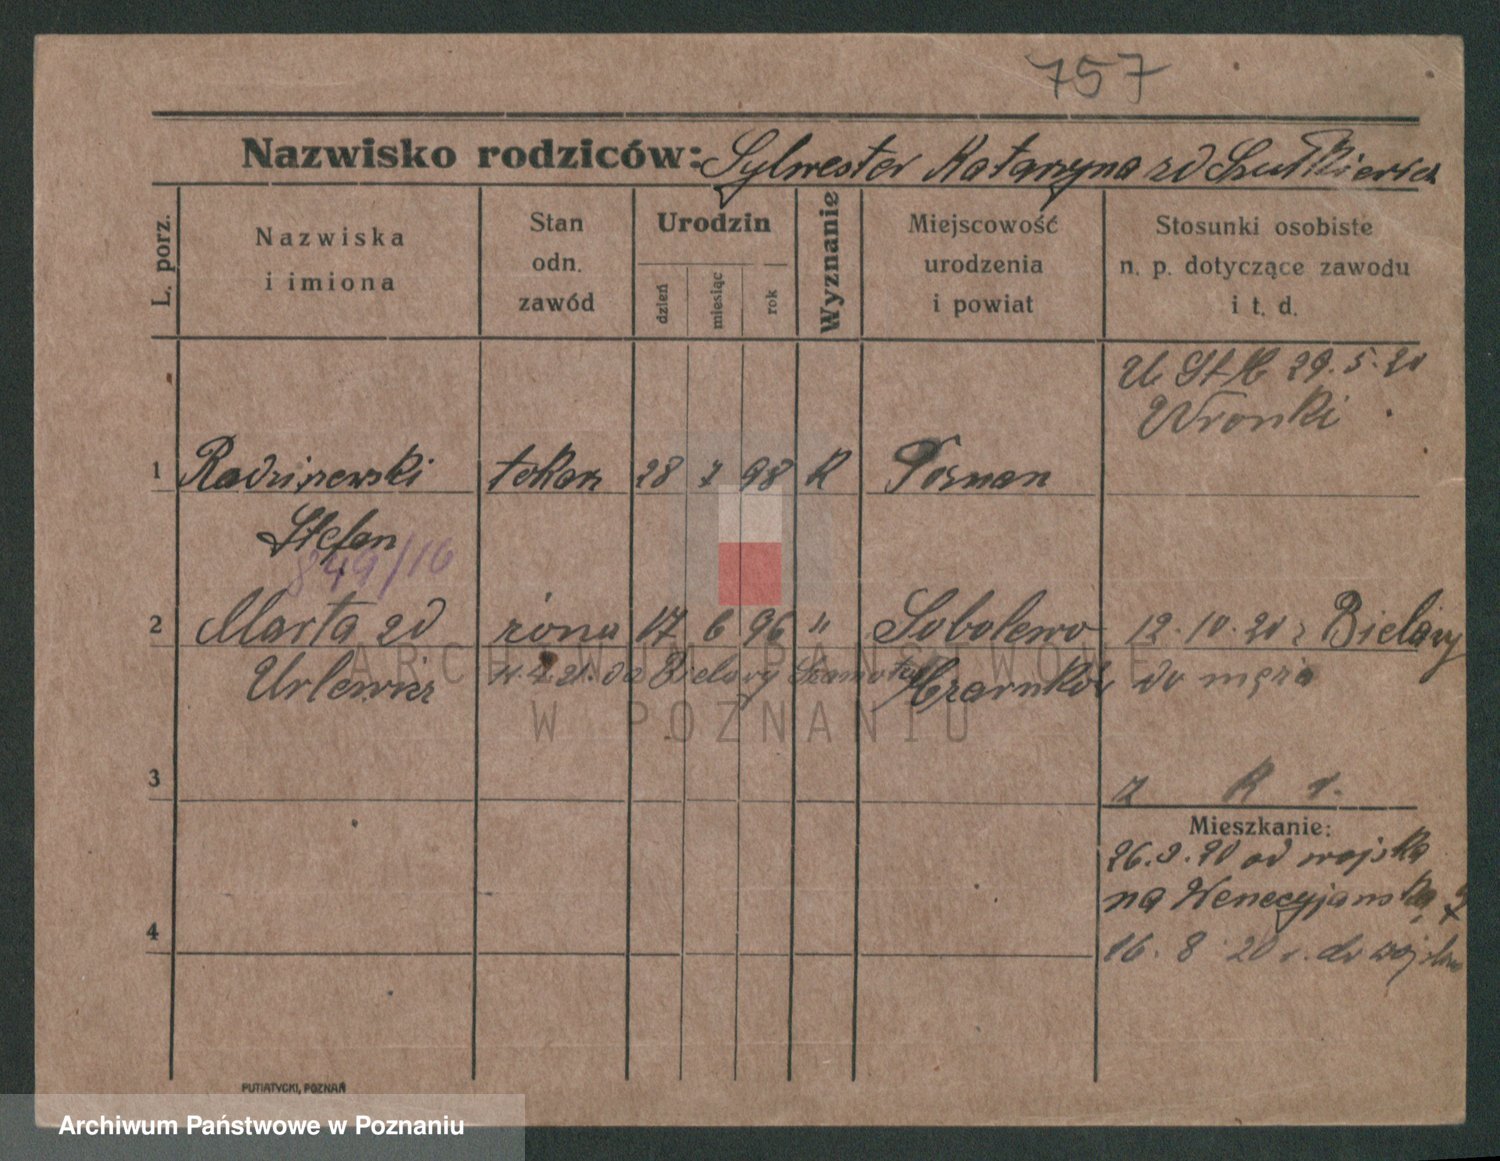 757
Nazwisko rodziców: Sylwester Katarzyna zd Szułkiewicz
L. porz.
Nazwiska
i imiona
Stan
odn.
zawód
Urodzin
dzień
miesiąc
rok
Wyznanie
Miejscowość
urodzenia
i powiat
Stosunki osobiste
n. p. dotyczące zawodu
i t. d.
29.5.20
Wronki
1 Radziszewski tokarz 28 7 98 K Poznan
Stefan
849/16
2 Marta zd żona 17 6 96 " Sobolewo 12.10.20 z Bielawy
Urlewicz 21. do Bielawy Szamotuły Czarnków do męża
3
Mieszkanie:
26.3.20 od wojska
na Wenecyjanską
4
16.8.20 r. do wojska
PUTIATYCKI, POZNAŃ
ARCHIWUM PAŃSTWOWE
W POZNANIU
Archiwum Państwowe w Poznaniu